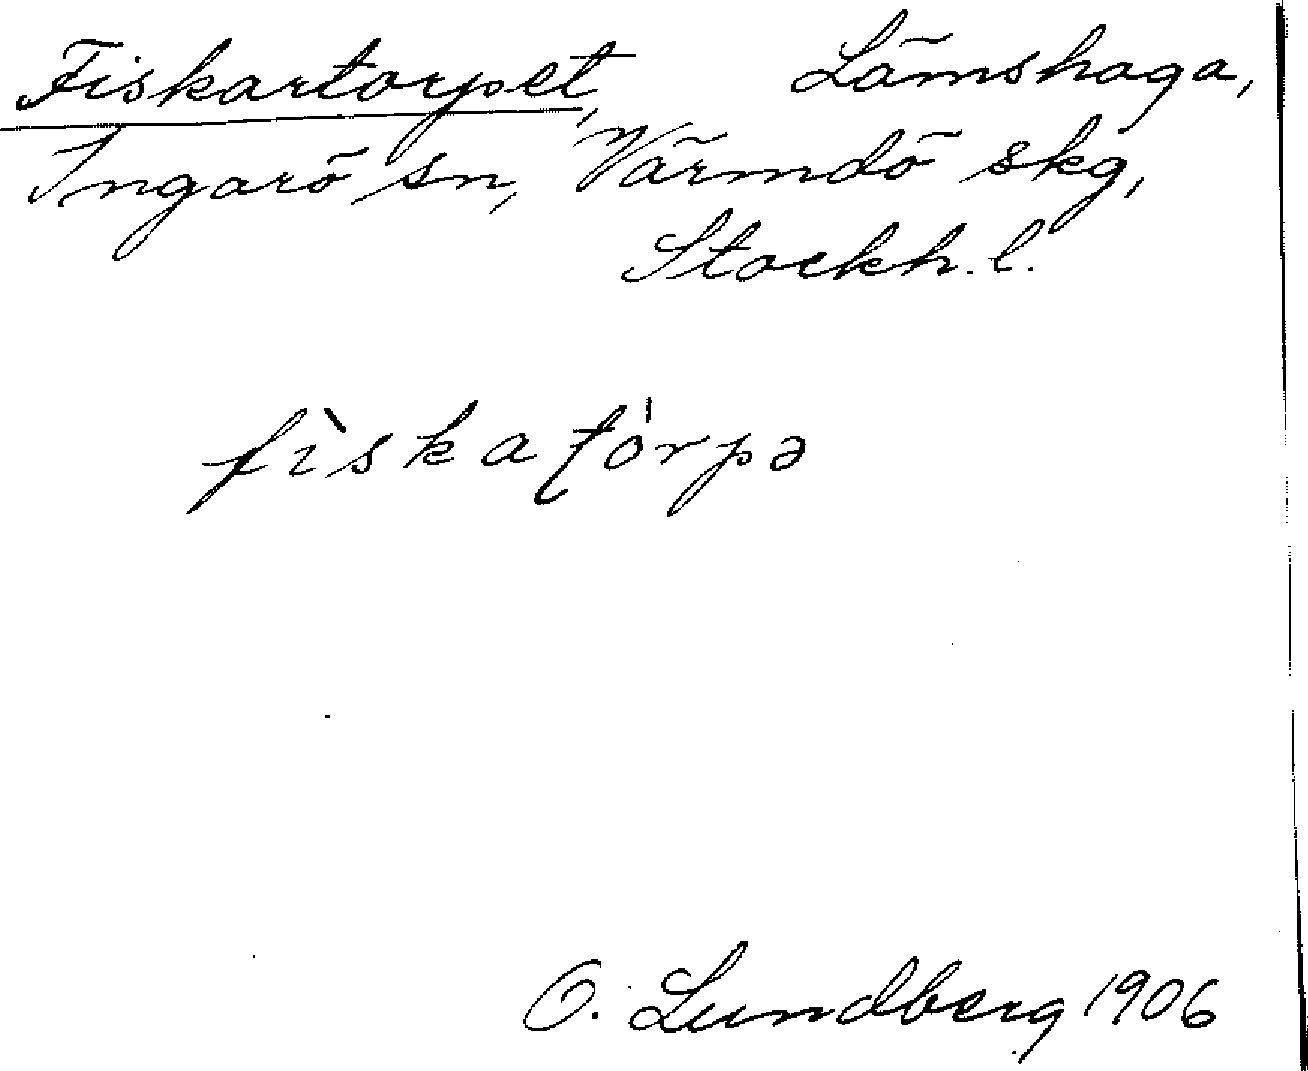 Fiskartorpet, Lämshaga,
Ingarö sn, Värmdö skg,
Stockh. l.
fìskatórpə
O. Lundberg 1906